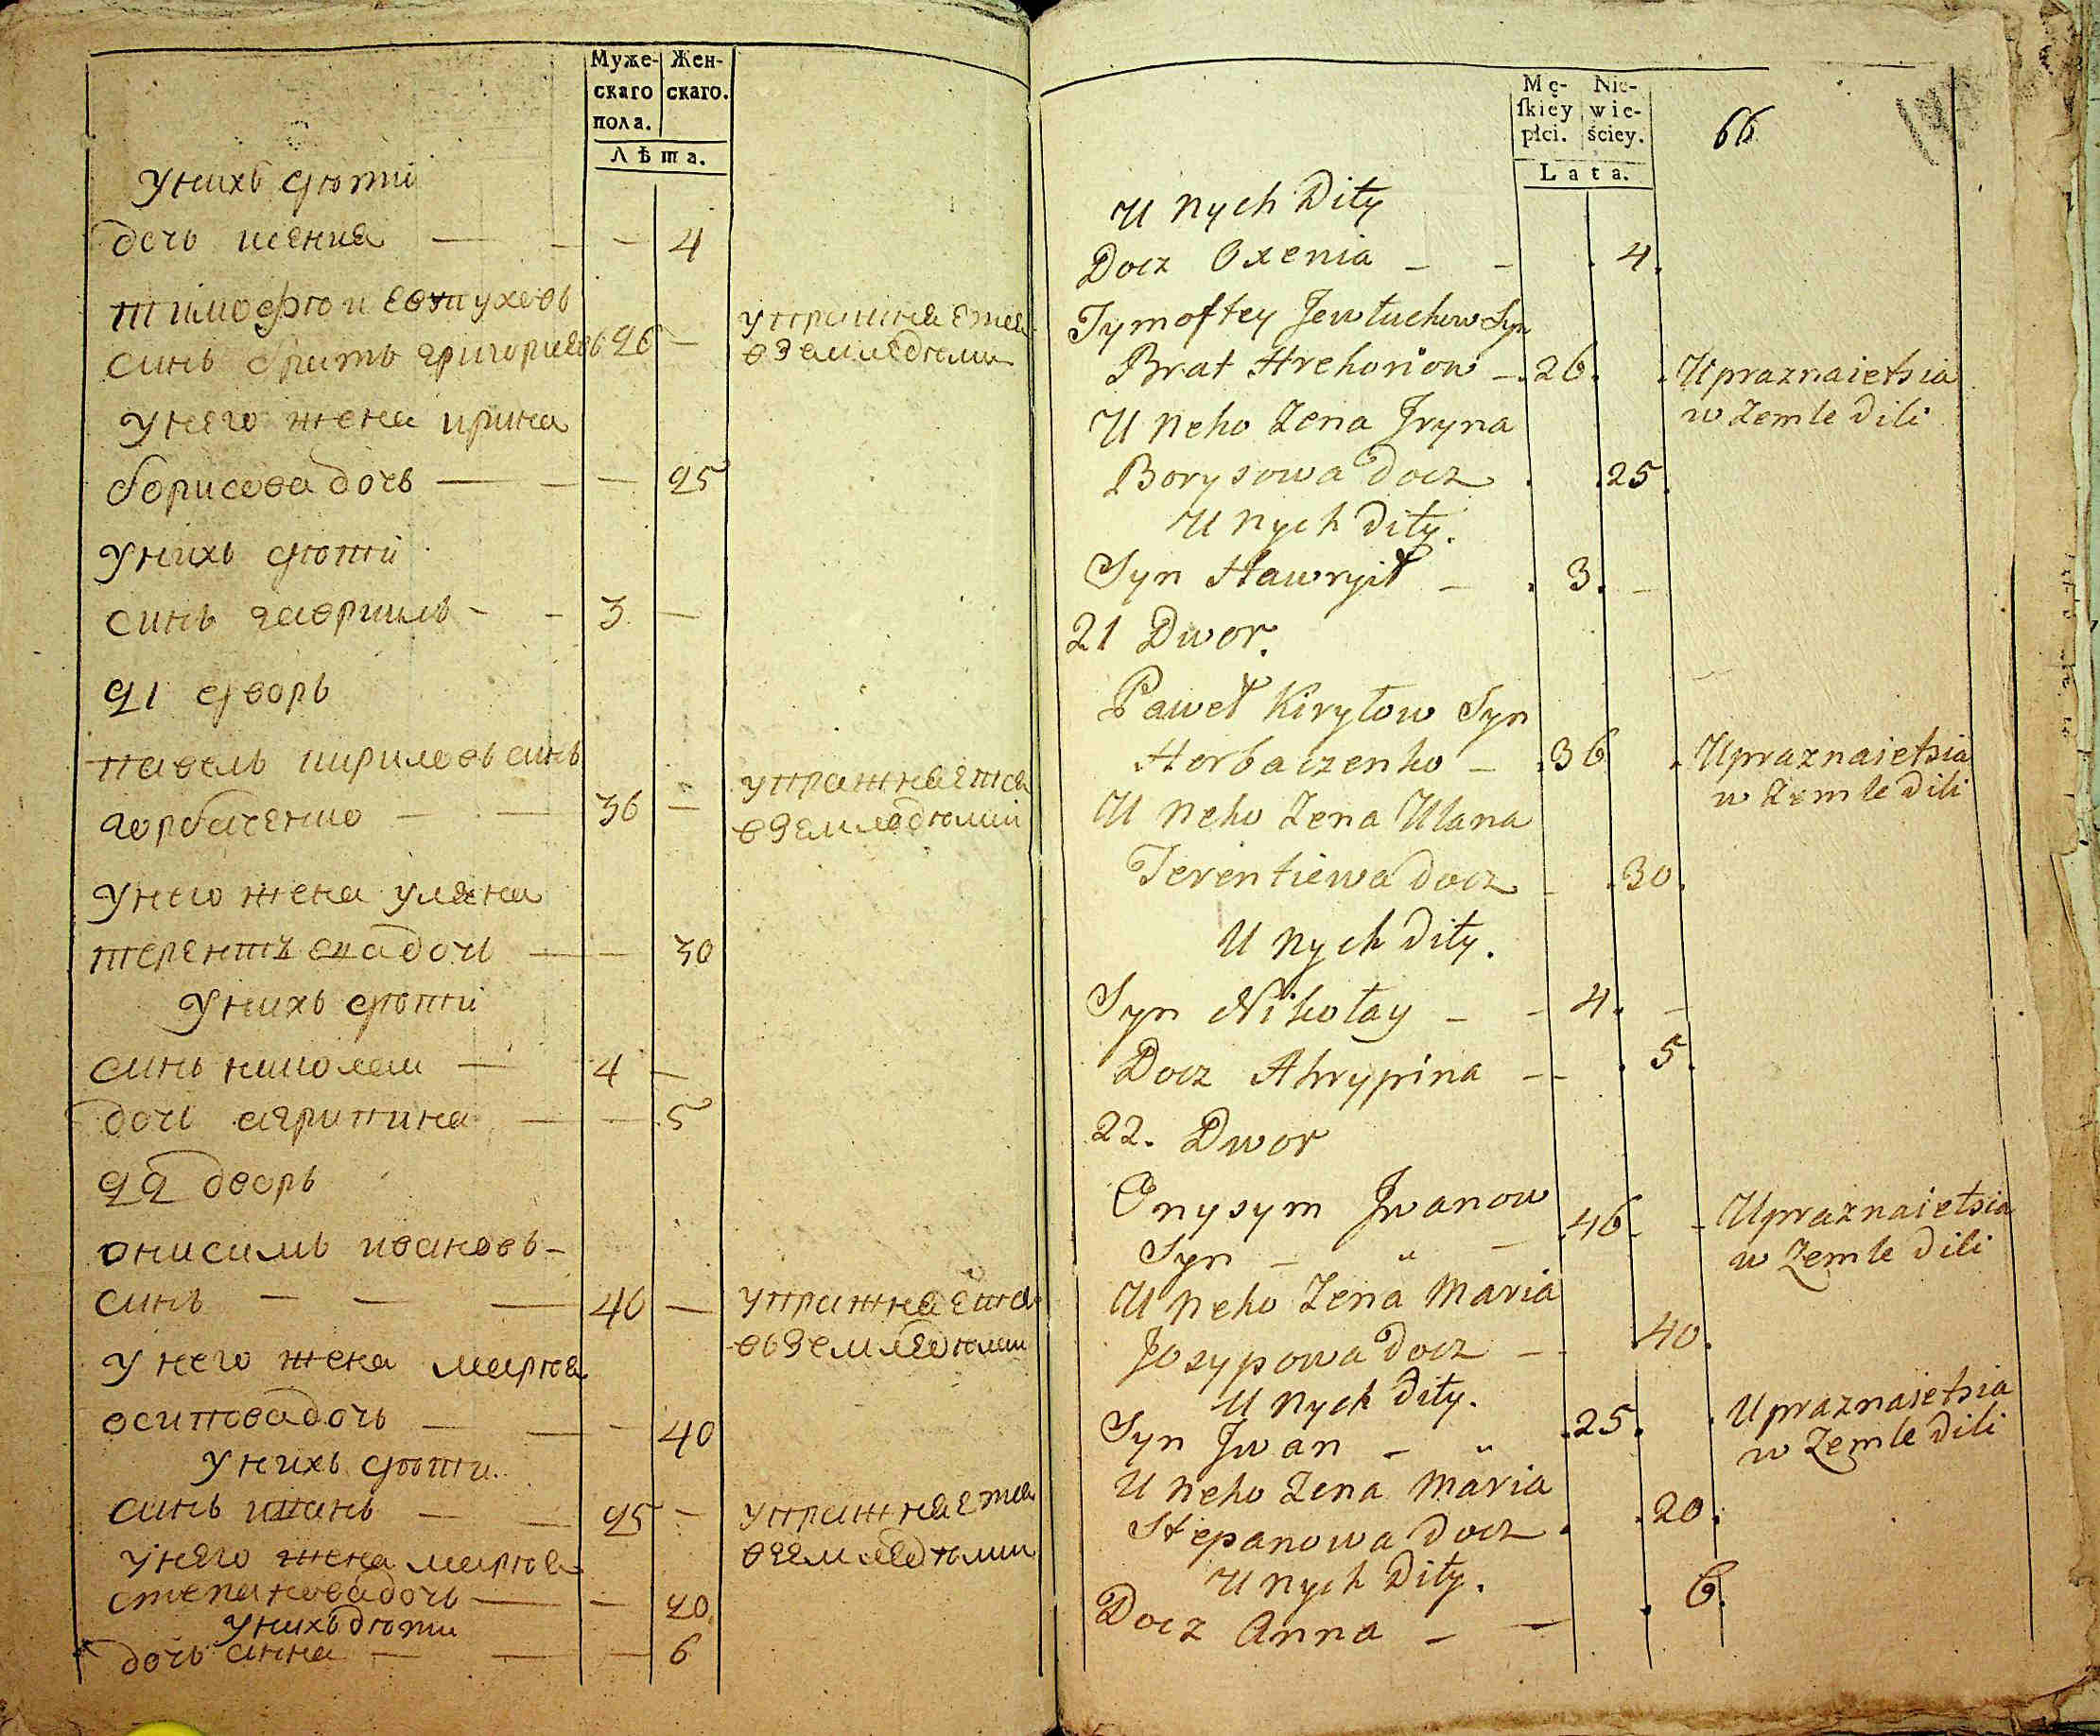 Муже-
скаго
пола.
Жен-
скаго.
Лѣта.
У нихъ дѣти
дочь ксения — — — 4
тимофѣи евтуховъ
синъ братъ григориевъ 26 — упражняется
в земледѣлии
У него жена ирина
борисова дочь — — — 25
У нихъ дѣти
синъ гавриилъ - - 3 —
21 дворъ
павелъ кириловъ синъ
горбаченко — — 36 — упражняется
в земледѣлии
У него жена уляна
терентъева дочь — — 30
У нихъ дѣти
синъ николай — 4 —
дочь агрипина — — 5
22 дворъ
онисимъ ивановъ -
синъ — — — 46 — упражняется
въ земледѣлии
У него жена марѣя
осипова дочь — — — 40
У нихъ дѣти.
синъ иванъ — — 25 — упражняется
в земледѣлии
У него жена марѣя
степанова дочь — — 20.
У нихъ дѣти
дочь анна — — — 6
Mę-
skiey
płci.
Nie-
wie-
ściey.
Lata.
66
U Nych Dity
Docz Oxenia — - 4.
Tymoftey Jewtuchow Syn
Brat Hrehoriow — .26. . Upraznaietsia
w Zemle dili
U Neho Zena Jryna
Borysowa docz . .25.
U Nych dity.
Syn Hawryił — . 3. -
21 Dwor.
Paweł Kiryłow Syn
Horbaczenko — .36 . Upraznaietsia
w Zemle dili
U Neho Zena Ulana
Terentiewa docz — .30.
U Nych dity.
Syn Nikołay — - 4. -
Docz Ahrypina — - . 5.
22. Dwor
Onysym Jwanow
Syn — " — .46- - Upraznaietsia
w Zemle dili
U Neho Zena Maria
Josypowa docz — - .40.
U Nych dity.
Syn Jwan — " .25. . Upraznaietsia
w Zemle dili
U Neho Zena Maria
Stepanowa docz . .20.
U Nych dity.
Docz Anna — — . 6.